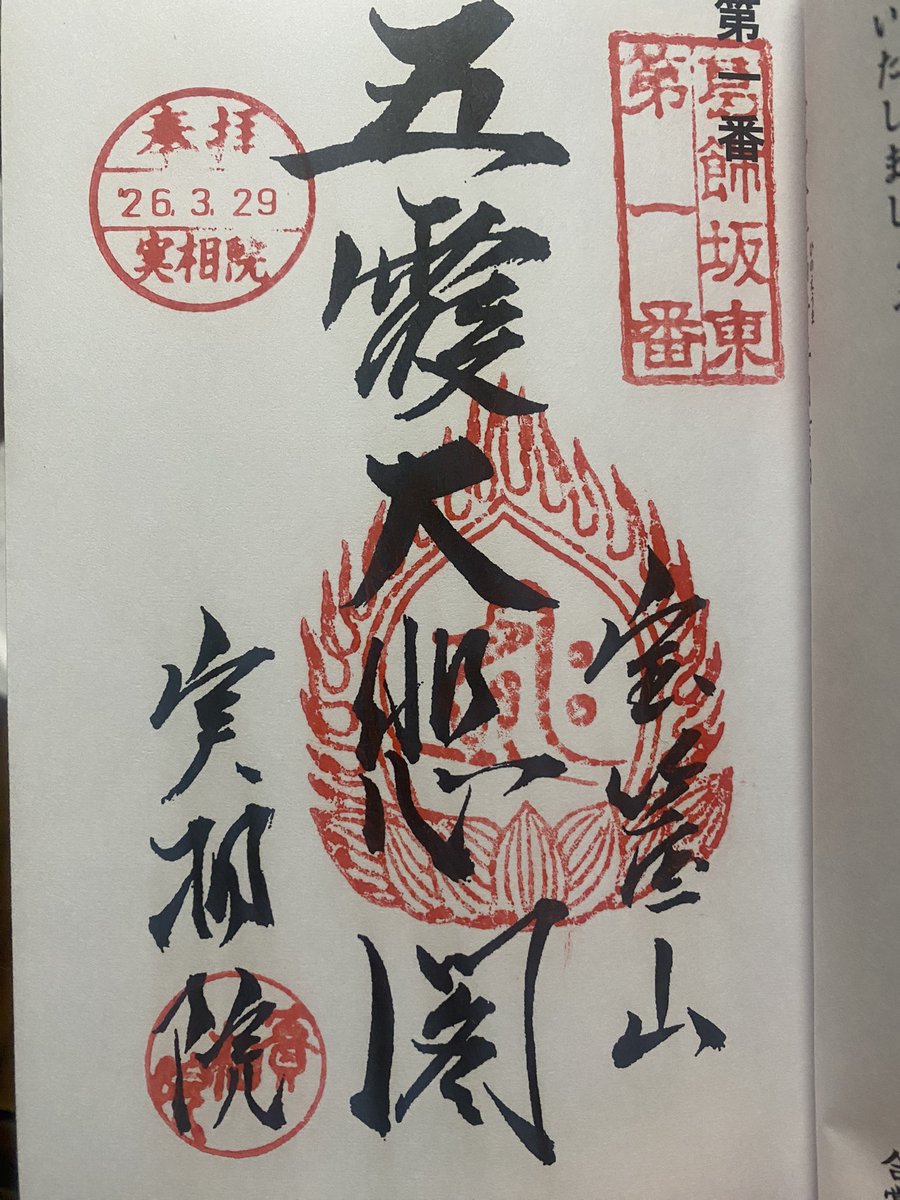 いたし
第一番
葛飾坂東
第一番
宝 山
五霞大悲閣
奉拝
'26. 3. 29
実相院
実相院